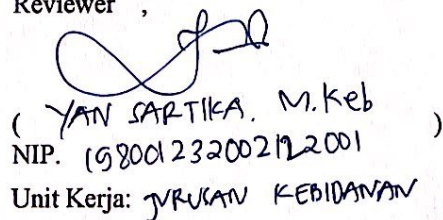 Reviewer ,
( YAN SARTIKA. M.Keb )
NIP. 198001232002122001
Unit Kerja: JURUSAN KEBIDANAN